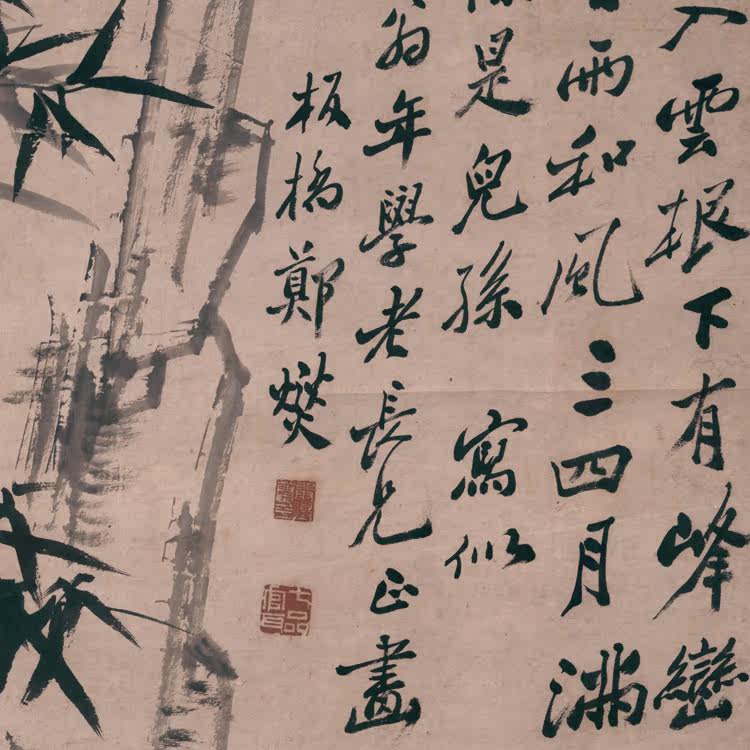 入雲根下有峰巒
雨和風三四月滿
是兒孫 寫似
翁年學老長兄正畫
板橋鄭燮
七品官耳